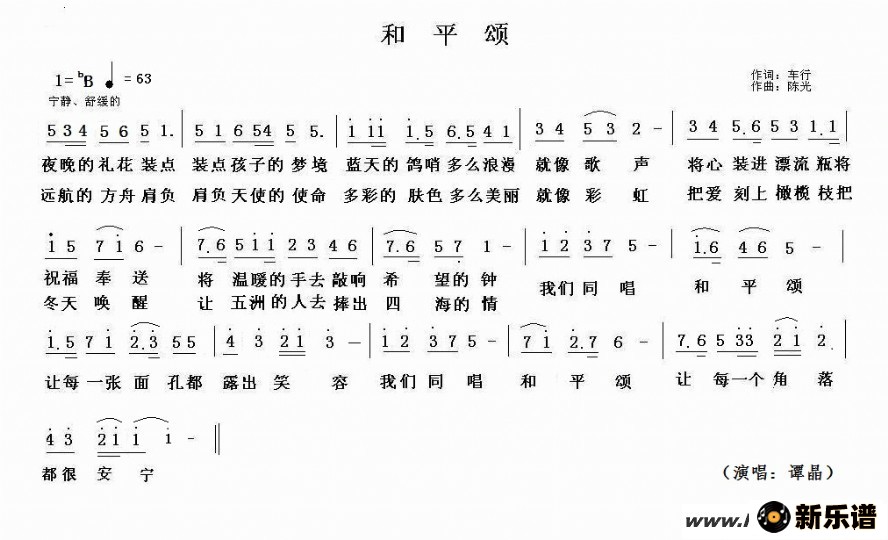 和 平 颂
1=ᵇB ♩= 63
作词：车行
宁静、舒缓的
作曲：陈光
5 3 4 5 6 5 1. | 5 1 6 5 4 5 5. | 1 1 1 1. 5 6. 5 4 1 | 3 4 5 3 2 - | 3 4 5. 6 5 3 1. 1 |
夜晚的礼花 装点 装点孩子的梦境 蓝天的鸽哨多么浪漫 就像 歌 声 将心 装进 漂流 瓶将
远航的 方舟 肩负 肩负天使的使命 多彩的 肤色 多么美丽 就像 彩 虹 把爱 刻上 橄榄 枝把
1 5 7 1 6 - | 7. 6 5 1 1 2 3 4 6 | 7. 6 5 7 1 - | 1 2 3 7 5 - | 1. 6 4 6 5 - |
祝福 奉 送 将 温暖的手去 敲响 希 望的 钟 我们 同 唱 和 平 颂
冬天 唤 醒 让 五洲的人去 捧出 四 海的 情
1. 5 7 1 2. 3 5 5 | 4 3 2 1 3 - | 1 2 3 7 5 - | 7 1 2. 7 6 - | 7. 6 5 3 3 2 1 2. |
让每 一张 面 孔都 露出 笑 容 我们 同 唱 和 平 颂 让 每一个 角 落
4 3 2 1 1 1 - ‖
都很 安 宁
（演唱：谭晶）
www.
新乐谱